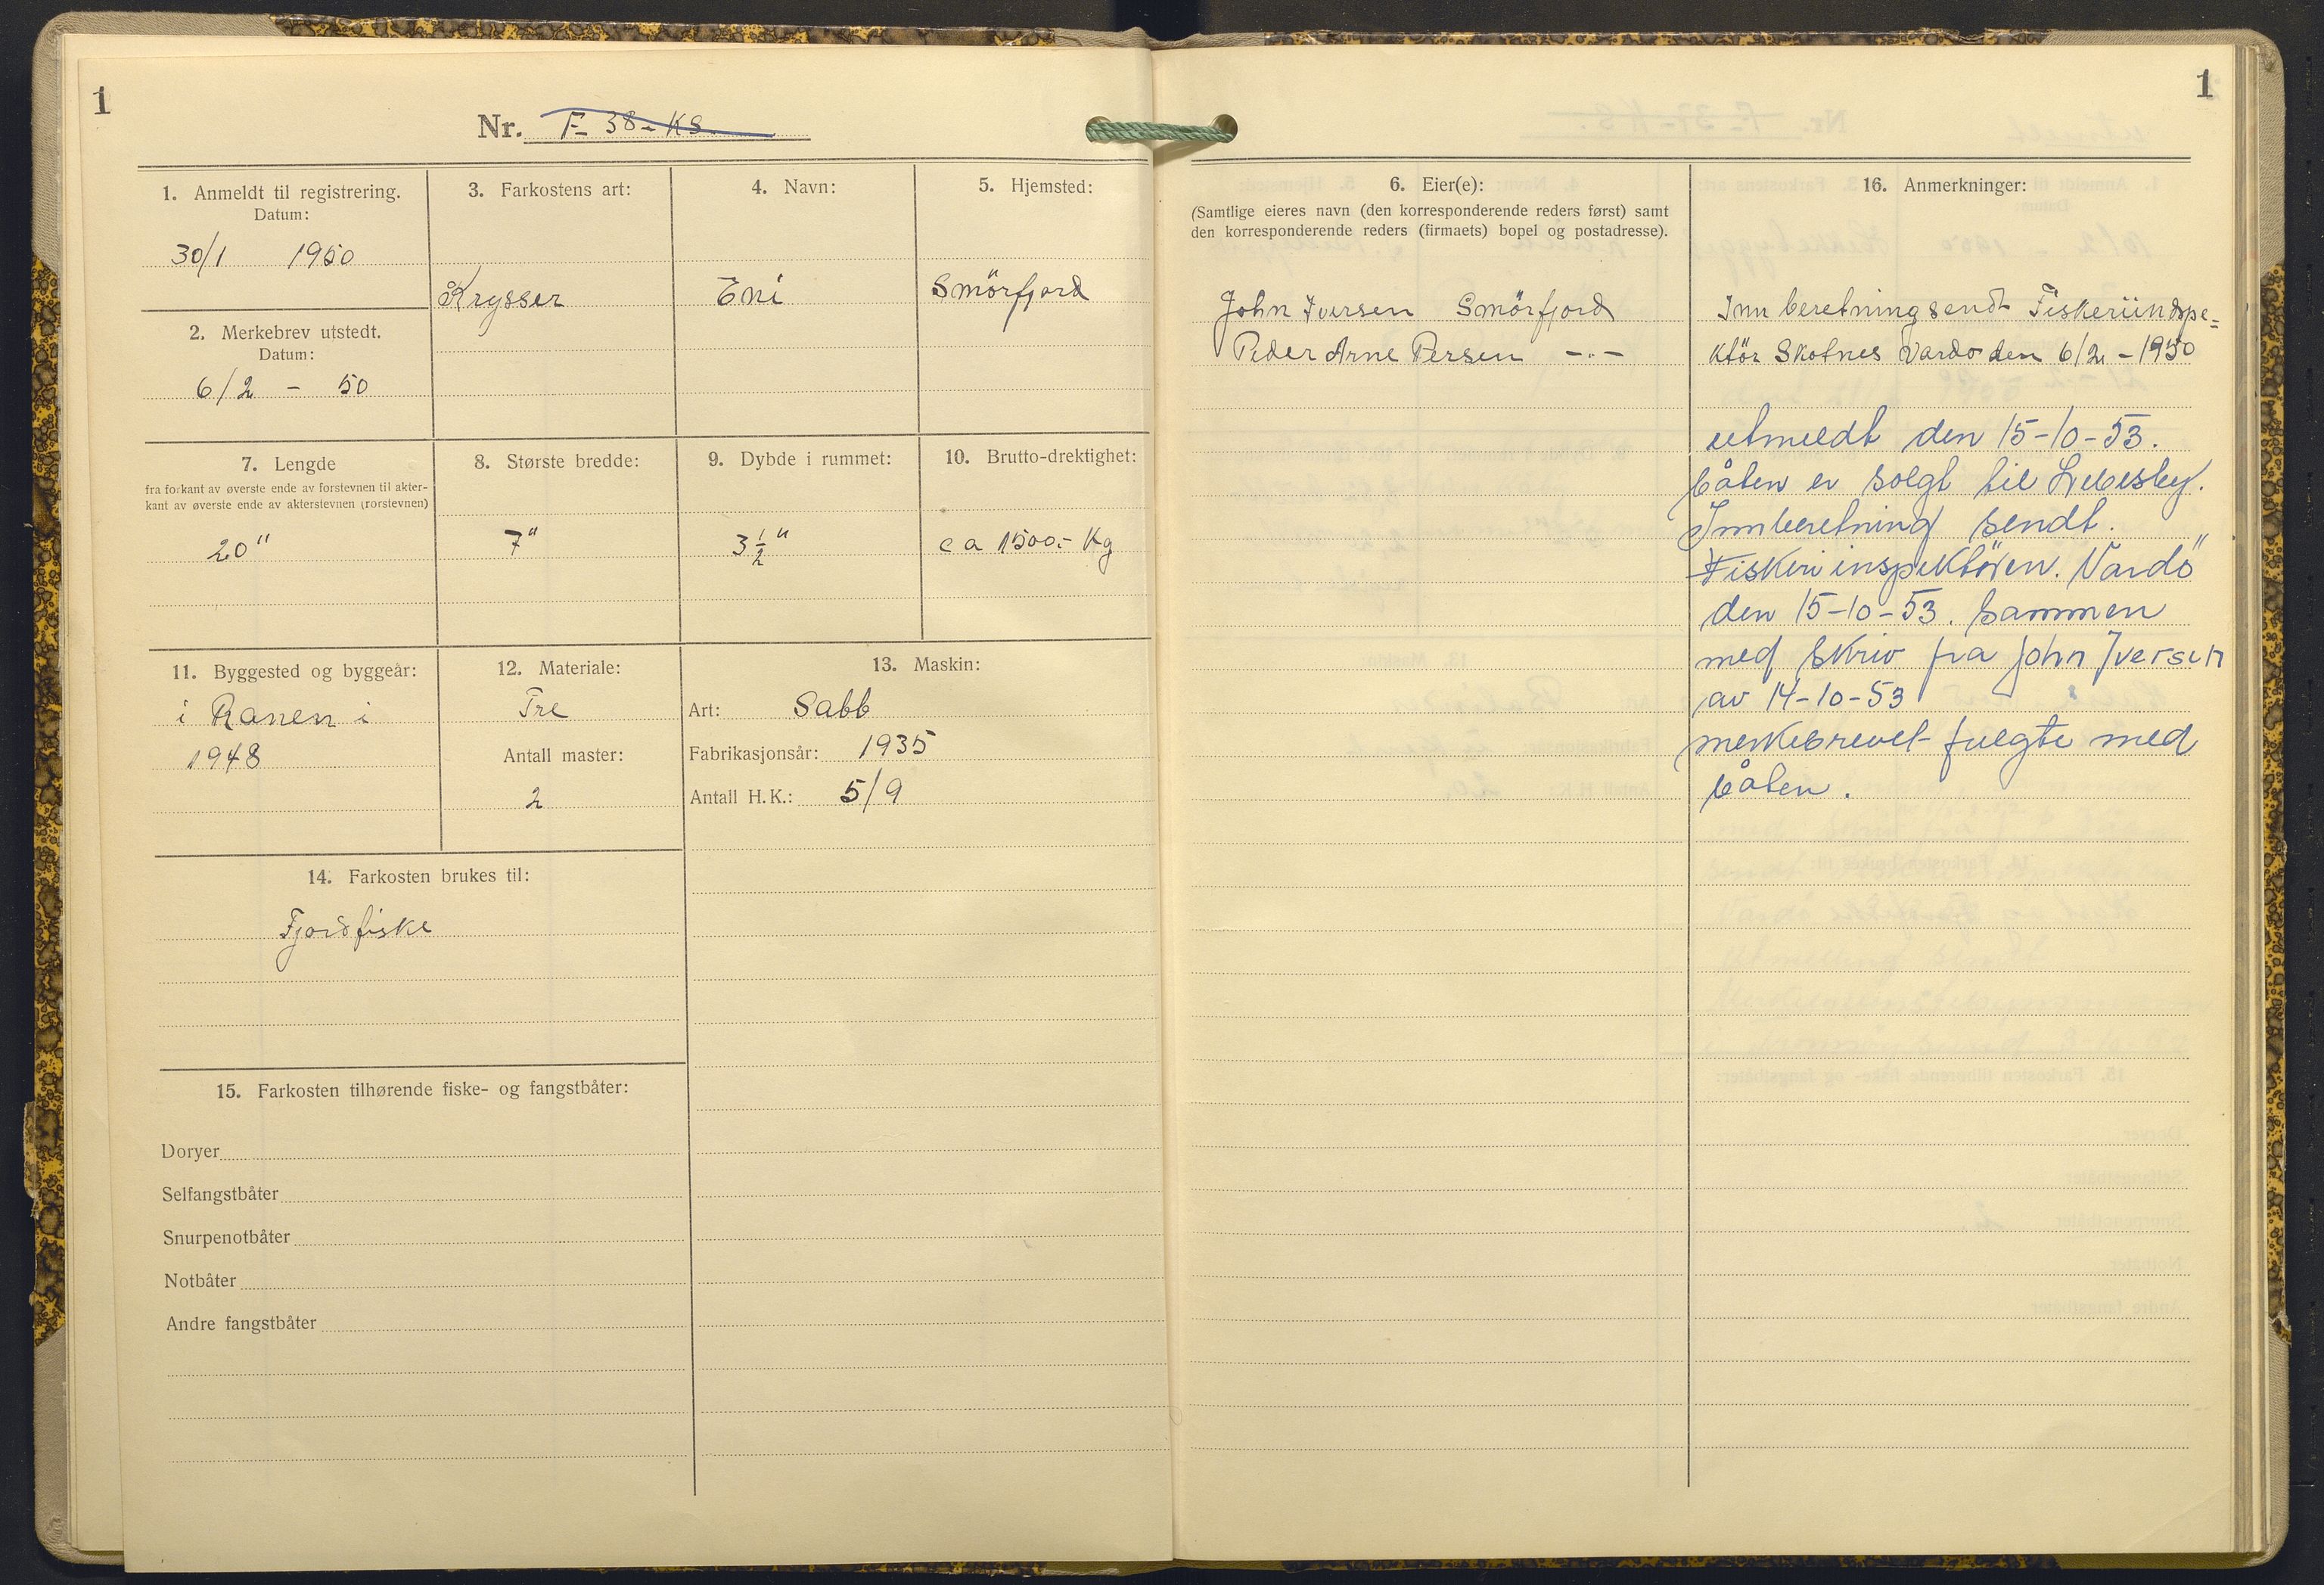 1
Nr. F- 38- KS.
1. Anmeldt til registrering.
Datum:
30/1 1950
2. Merkebrev utstedt.
Datum:
6/2 - 50
3. Farkostens art:
Krysser
4. Navn:
Eni
5. Hjemsted:
Smörfjord
7. Lengde
fra forkant av øverste ende av forstevnen til akter-
kant av øverste ende av akterstevnen (rorstevnen)
20"
8. Største bredde:
7"
9. Dybde i rummet:
3 1/2 "
10. Brutto-drektighet:
ca 1500,- Kg
11. Byggested og byggeår:
i Ranen i
1948
12. Materiale:
Tre
Antall master:
2
13. Maskin:
Art: Sabb
Fabrikasjonsår: 1935
Antall H.K.: 5/9
14. Farkosten brukes til:
Fjordfiske
15. Farkosten tilhørende fiske- og fangstbåter:
Doryer
Selfangstbåter
Snurpenotbåter
Notbåter
Andre fangstbåter
1
6. Eier(e):
(Samtlige eieres navn (den korresponderende reders først) samt
den korresponderende reders (firmaets) bopel og postadresse).
John Iversen Smörfjord
Peder Arne Persen -"-
16. Anmerkninger:
Innberetning sendt Fiskeriindspe=
ktör Skotnes Vardö den 6/2 - 1950
utmeldt den 15-10-53.
båten er solgt til Lebesby.
Innberetning sendt.
Fiskeriinspektören. Vardö
den 15-10-53. sammen
med skriv fra John Iversen
av 14-10-53
merkebrevet fulgte med
båten.